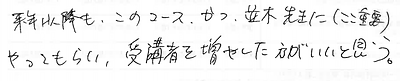 来年以降も、このコース、かつ、並木先生に(ここ重要)
やってもらい、受講者を増やした方がいいと思う。